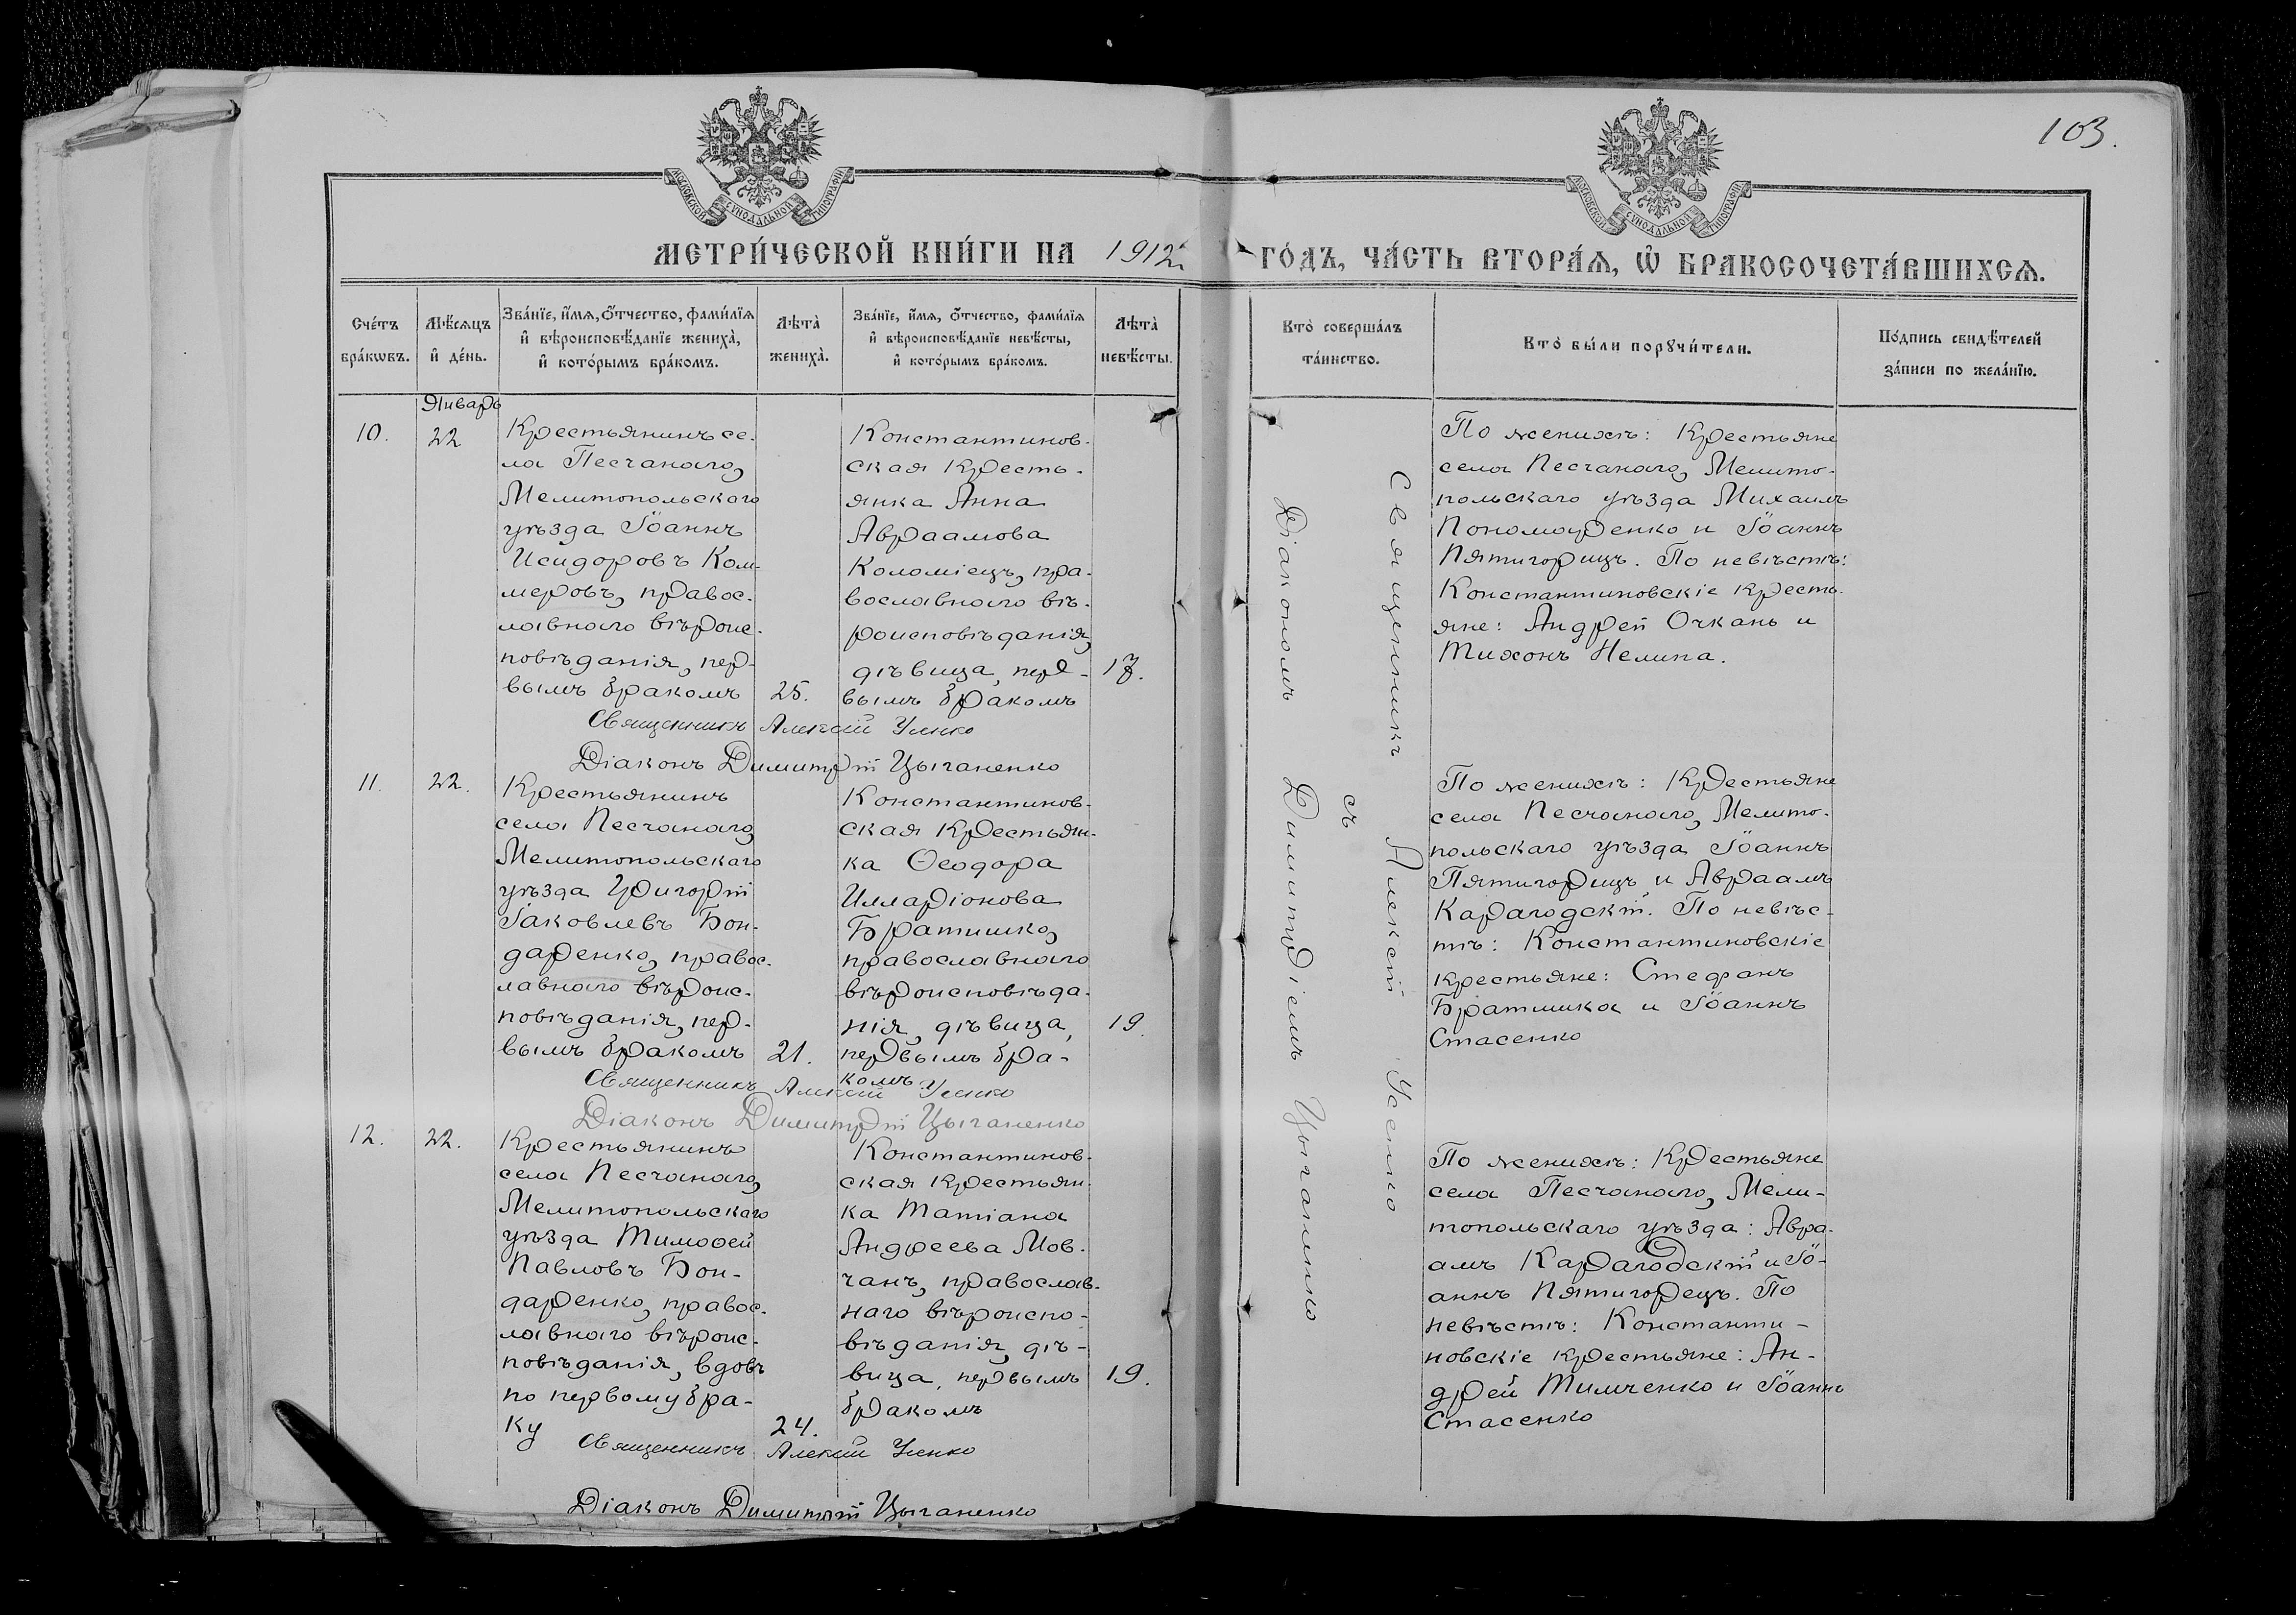 103.
МОСКОВСКОЙ СѴНОДАЛЬНОЙ ТИПОГРАФІИ
МОСКОВСКОЙ СѴНОДАЛЬНОЙ ТИПОГРАФІИ
МЕТРИ́ЧЕСКОЙ КНИ́ГИ НА 1912 ГО́ДЪ, ЧА́СТЬ ВТОРА́Ѧ, Ѡ҆ БРАКОСОЧЕТА́ВШИХСѦ.
Сче́тъ
бра́кωвъ.
Мѣ́сяцъ
и҆ де́нь.
Зва́нїе, и҆́мя, ѻ҆́тчество, фами́лїя
и҆ вѣроисповѣ́данїе жениха̀,
и҆ кото́рымъ бра́комъ.
Лѣта̀
жениха̀.
Зва́нїе, и҆́мя, ѻ҆́тчество, фами́лїя
и҆ вѣроисповѣ́данїе невѣ́сты,
и҆ кото́рымъ бра́комъ.
Лѣта̀
невѣ́сты.
Кто̀ соверша́лъ
та́инство.
Кто̀ бы́ли порꙋчи́тели.
По́дпись свидѣ́телей
за́писи по жела́нїю.
Январь
10.
22
Крестьянинъ се-
ла Песчанаго,
Мелитопольскаго
уѣзда Іоаннъ
Исидоровъ Ком-
меровъ, правос-
лавного вѣроис-
повѣданія, пер-
вымъ бракомъ
25.
Константинов-
ская кресть-
янка Анна
Авраамова
Коломіецъ, пра-
вославного вѣ-
роисповѣданія,
дѣвица, пер-
вымъ бракомъ
17.
Священникъ Алексій Усенко
Діаконъ Димитрій Цыганенко
По женихѣ: Крестьяне
села Песчанаго, Мелито-
польскаго уѣзда Михаилъ
Пономаренко и Іоаннъ
Пятигорецъ. По невѣстѣ:
Константиновскіе кресть-
яне: Андрей Очкань и
Тихонъ Нелипа.
11.
22.
Крестьянинъ
села Песчанаго,
Мелитопольскаго
уѣзда Григорій
Іаковлевъ Бон-
даренко, правос-
лавного вѣроис-
повѣданія, пер-
вымъ бракомъ
21.
Константинов-
ская крестьян-
ка Ѳеодора
Илларіонова
Братишко,
православного
вѣроисповѣда-
нія, дѣвица,
первымъ бра-
комъ
19.
Священникъ Алексій Усенко
Діаконъ Димитрій Цыганенко
По женихѣ: Крестьяне
села Песчанаго, Мелито-
польскаго уѣзда Іоаннъ
Пятигорецъ и Авраамъ
Карагодскій. По невѣс-
тѣ: Константиновскіе
крестьяне: Стефанъ
Братишка и Іоаннъ
Стасенко
12.
22.
Крестьянинъ
села Песчанаго,
Мелитопольскаго
уѣзда Тимоѳей
Павловъ Бон-
даренко, правос-
лавного вѣроис-
повѣданія, вдовъ
по первому бра-
ку
24.
Константинов-
ская крестьян-
ка Татіана
Андреева Мов-
чанъ, православ-
наго вѣроиспо-
вѣданія, дѣ-
вица, первымъ
бракомъ
19.
Священникъ Алексій Усенко
Діаконъ Димитрій Цыганенко
По женихѣ: Крестьяне
села Песчанаго, Мели-
топольскаго уѣзда: Авра-
амъ Карагодскій и Іо-
аннъ Пятигорецъ. По
невѣстѣ: Константи-
новскіе крестьяне: Ан-
дрей Тимченко и Іоаннъ
Стасенко
Священникъ Алексій Усенко
съ
Діакономъ Димитріемъ Цыганенко